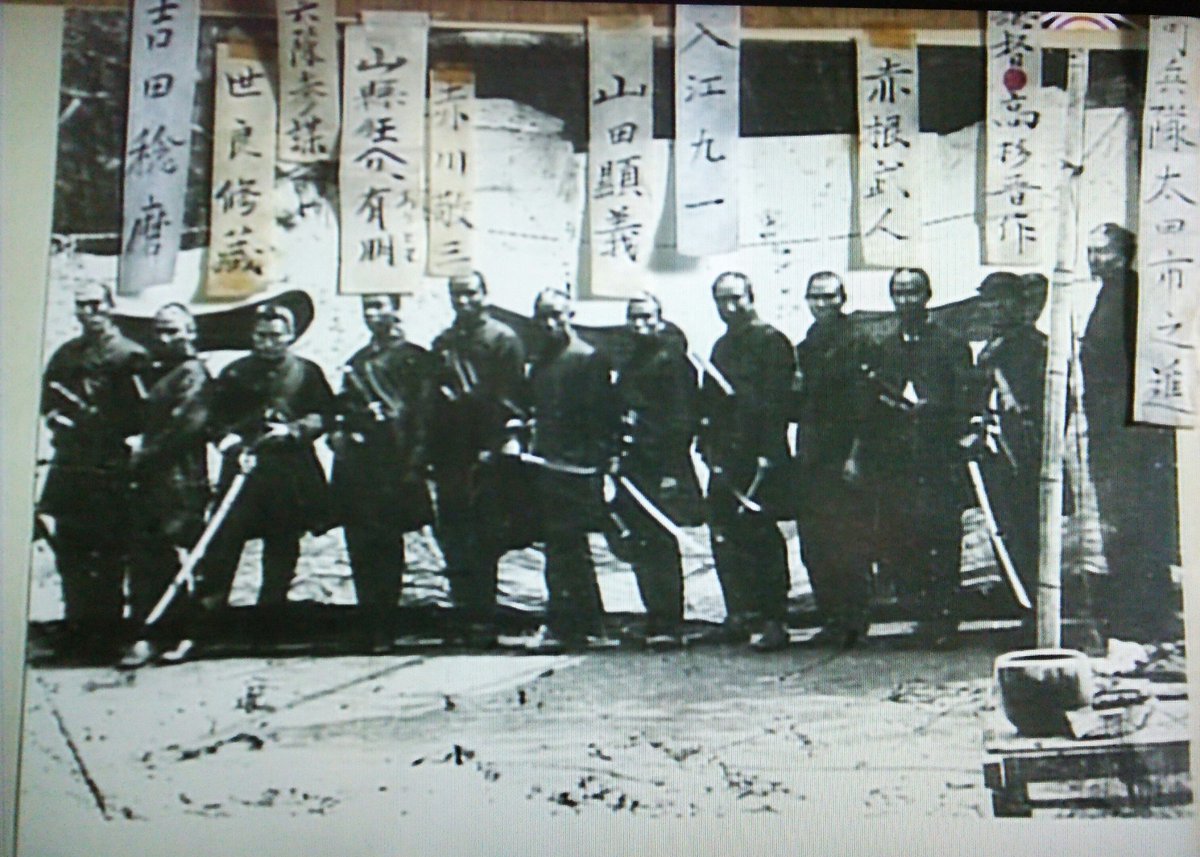 兵隊太田市之進
督 高杉晋作
赤根武人
入江九一
山田顕義
赤川敬三
山縣狂介有朋
隊参謀
世良修蔵
吉田稔麿